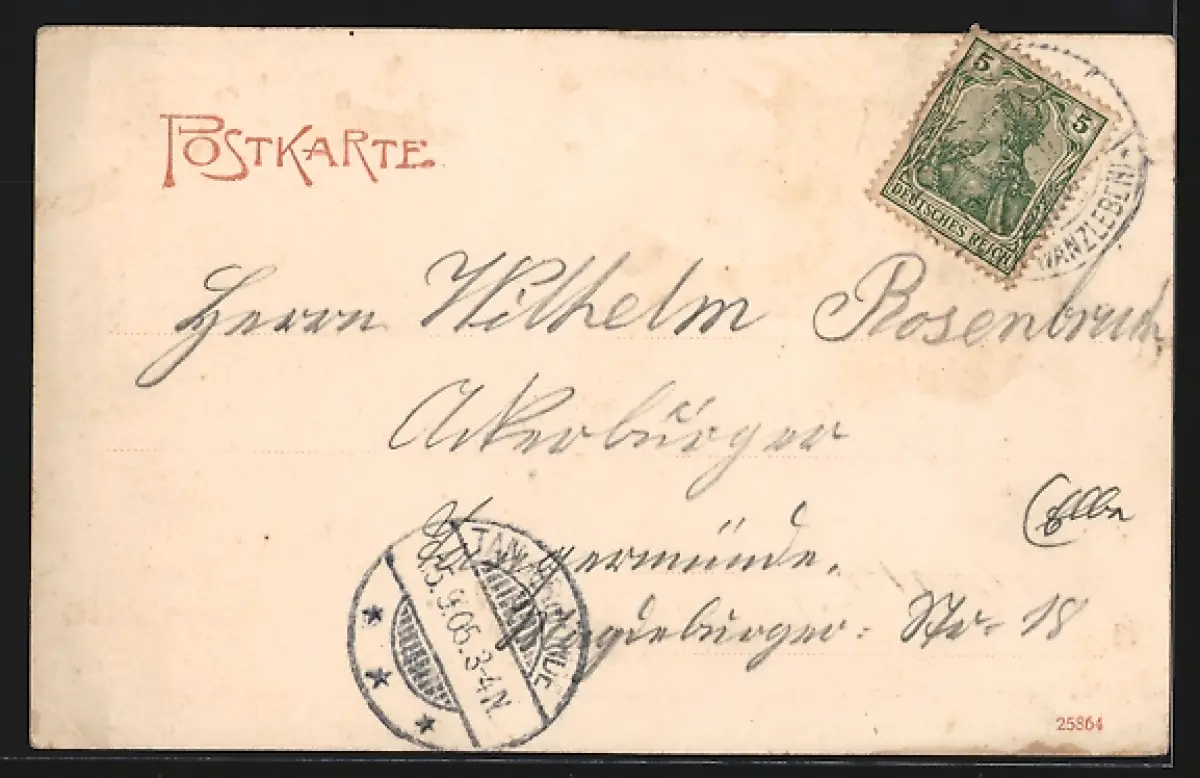 POSTKARTE
5 5
DEUTSCHES REICH
WANZLEBEN
Herrn Wilhelm Rosenbruch
Ackerbürger
Tangermünde. (Elbe
Magdeburger-Str. 18
TANGERMÜNDE
5.9.06.3-4N
25864